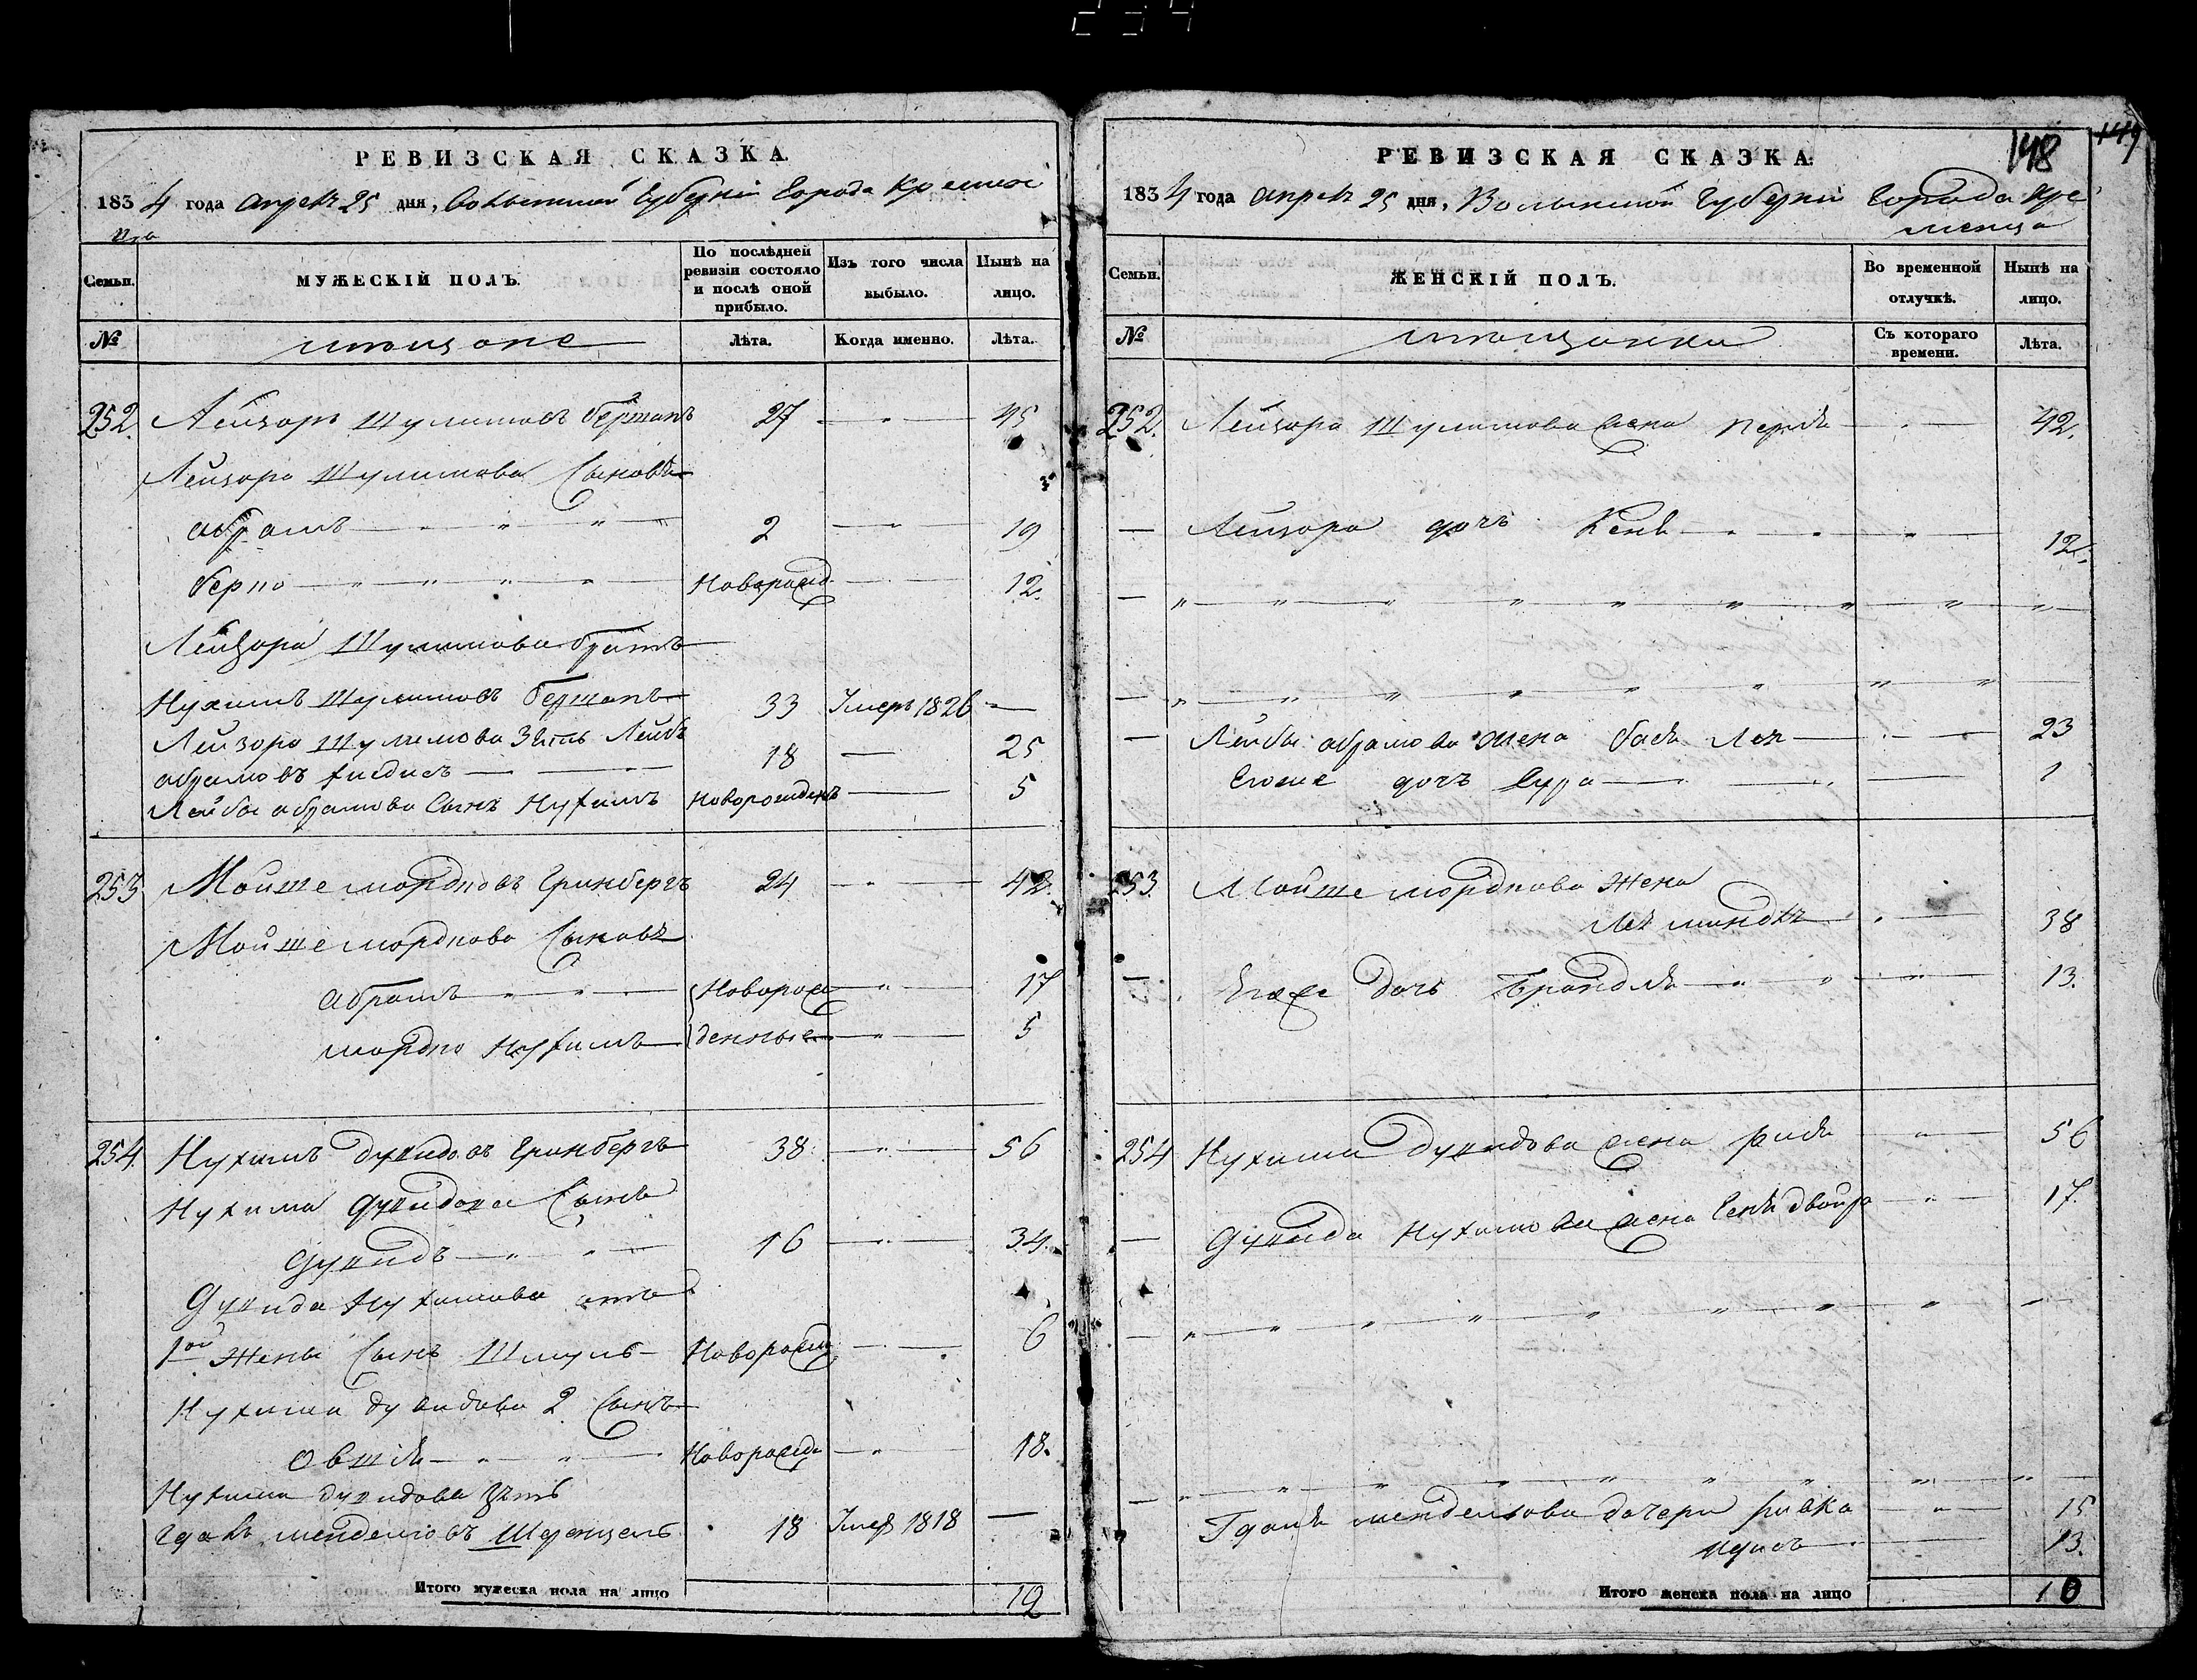 234
РЕВИЗСКАЯ СКАЗКА.
1834 года апрель 25 дня, Волынской Губерніи Города Кременца
Семьи. МУЖЕСКІЙ ПОЛЪ. По послѣдней ревизіи состояло и послѣ оной прибыло. Изъ того числа выбыло. Нынѣ на лицо.
№ мещане Лѣта. Когда именно. Лѣта.
252 Лейзоръ Шулимовъ 27 — 45
Лейзора Шулимова Сыновья
Абрамъ 2 — 19
Берко Новорожд — 12.
Лейзора Шулимова братъ
Нухимъ Шулимовъ 33 Умеръ 1826 —
Лейзора Шулимова Зять Лейба 18 — 25
Абрамовъ
Лейбы Абрамова Сынъ Нухимъ Новорожденъ — 5
253 Мойше Мордковъ Гринбергъ 24 — 42.
Мойше Мордкова Сыновья
Абрамъ Новорож — 17
Мордко Нухимъ денные — 5
254. Нухимъ Дувидовъ Гринбергъ 38 — 56
Нухима Дувидова Сынъ
Дувидъ 16 — 34.
Дувида Нухимова отъ
1ой Жены Сынъ Шмуль Новорожд — 6
Нухима Дувидова 2 Сынъ
Овшія Новорожд — 18.
Нухима Дувидова зять
Менделіовъ 18 Умеръ 1818 —
Итого мужеска пола на лицо 12
148
149
РЕВИЗСКАЯ СКАЗКА.
1834 года апрель 25 дня, Волынской Губерніи Города Кре
менца
Семьи. ЖЕНСКІЙ ПОЛЪ. Во временной отлучкѣ. Нынѣ на лицо.
№ мещанки Съ котораго времени. Лѣта.
252. Лейзора Шулимова жена Перля — 42.
— Лейзора дочь Кеня — 12.
— Лейбы Абрамова жена Бася Лея — 23
Егоже дочь Сура — 1
253 Мойше Мордкова Жена
Миндля — 38
— Егоже дочь Брандля — 13.
254 Нухима Дувидова жена — 56
— Дувида Нухимова жена Двойра — 17.
— Менделіова дочери Ривка — 15
13.
Итого женска пола на лицо 10